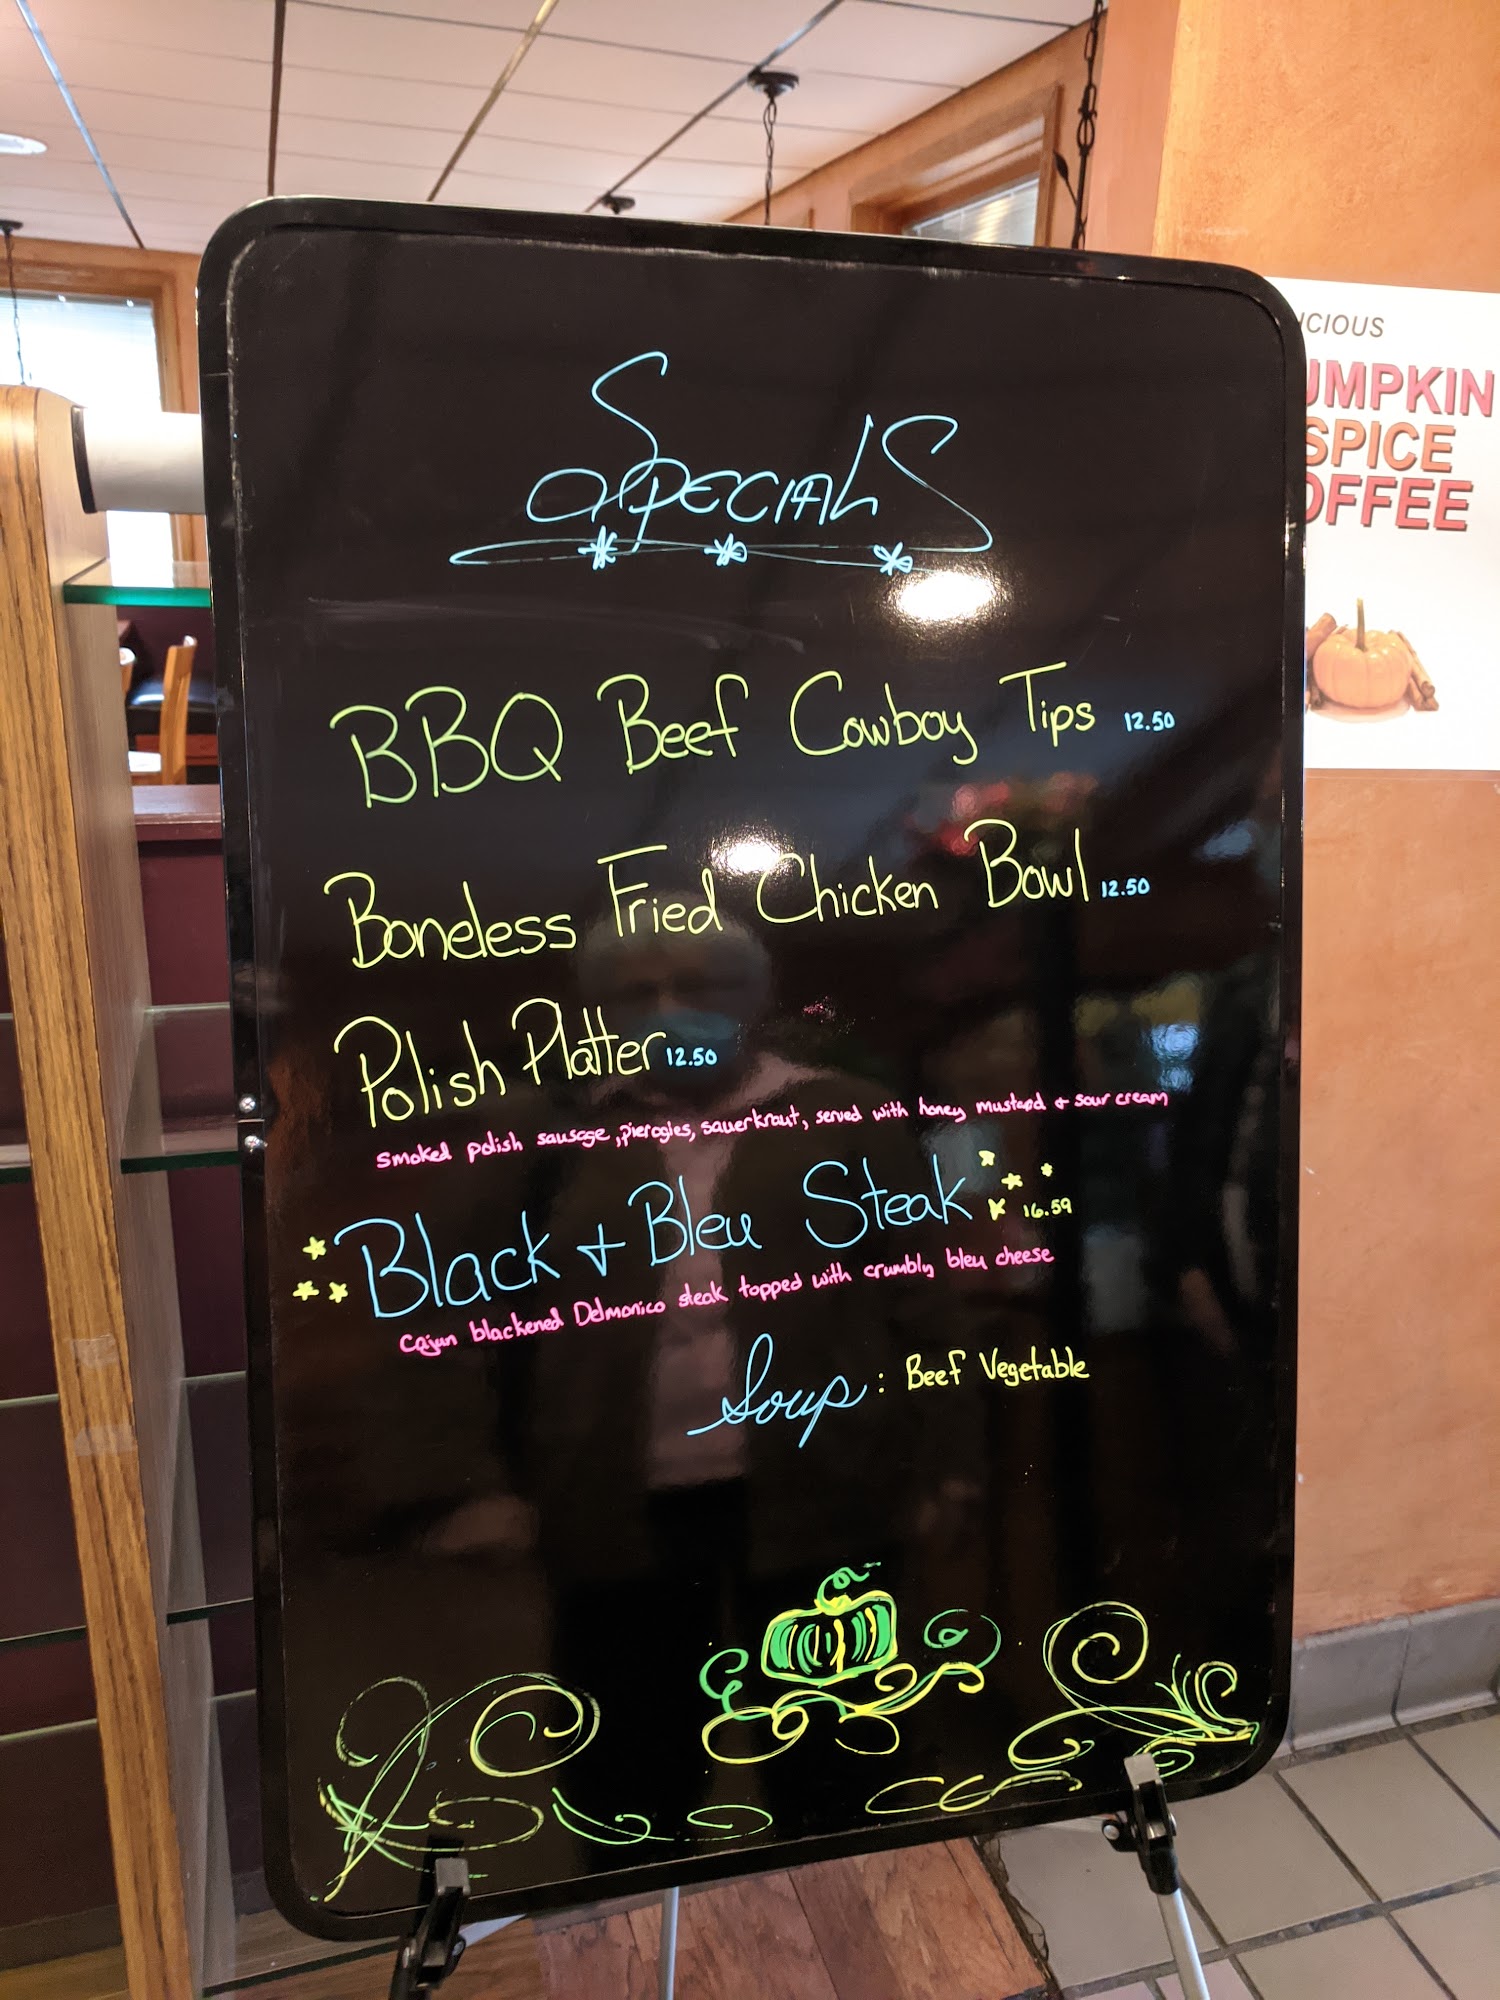 Specials
BBQ Beef Cowboy Tips 12.50
Boneless Fried Chicken Bowl 12.50
Polish Platter 12.50
smoked polish sausage, pierogies, sauerkraut, served with honey mustard + sour cream
Black + Bleu Steak 16.59
Cajun blackened Delmonico steak topped with crumbly bleu cheese
Soup: Beef Vegetable
ICIOUS
UMPKIN
SPICE
OFFEE